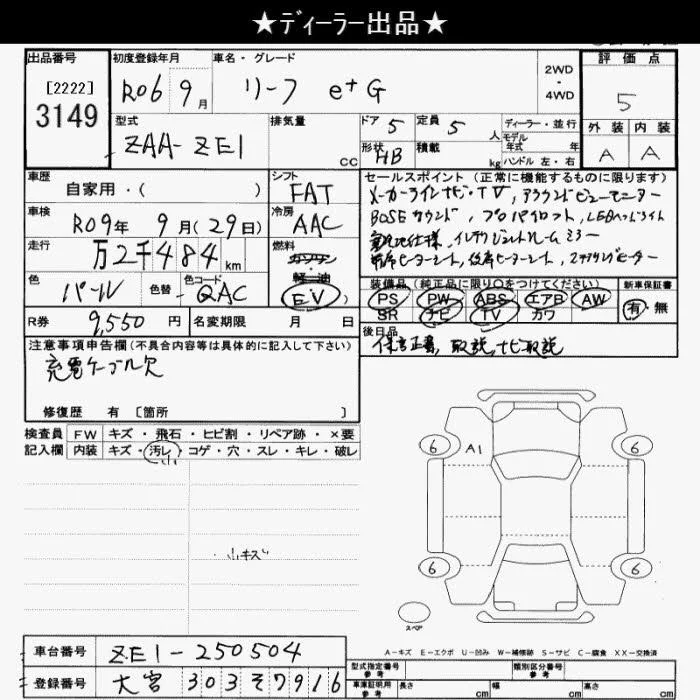 ★ディーラー出品★
出品番号
[2222]
3149
初度登録年月
R06 9月
車名・グレード
リーフ e+G
2WD
・
4WD
評価点
5
外装 内装
A A
型式
ZAA-ZE1
排気量
cc
ドア 5
定員 5 人
形状 HB
積載 kg
ディーラー・並行
モデル
年式 年
ハンドル 左・右
車歴
自家用・( )
シフト
FAT
車検
R09年 9月(29日)
冷房
AAC
走行
万2千484km
燃料
ガソリン
軽・油
EV)
色
パール
色替
色コード
QAC
R券 9,550円
名変期限 月 日
セールスポイント(正常に機能するものに限ります)
メーカーラインナビ・TV, アラウンドビューモニター
BOSEサウンド, プロパイロット, LEDヘッドライト
寒冷地仕様, インテリジェントルームミラー
前席ヒーターシート, 後席ヒーターシート, ステアリングヒーター
装備品(純正品に限り○をつけてください)
新車保証書
PS PW ABS エアB AW
SR ナビ TV カワ
有・無
後日品
保証書, 取説, ナビ取説
注意事項申告欄(不具合内容等は具体的に記入して下さい)
充電ケーブル欠
修復歴 有 [箇所 ]
検査員 FW キズ・飛石・ヒビ割・リペア跡・×要
記入欄 内装 キズ・汚レ・コゲ・穴・スレ・キレ・破レ
小
小キズ
6 A1 6
6 6
スペア
A-キズ E-エクボ U-凹み W-補修跡 S-サビ C-腐食 XX-交換済
車台番号 ZE1-250504
登録番号 大宮 303 そ 7916
型式指定番号
参考
類別区分番号
参考
車庫証明用
参考
長さ cm 幅 cm 高さ cm